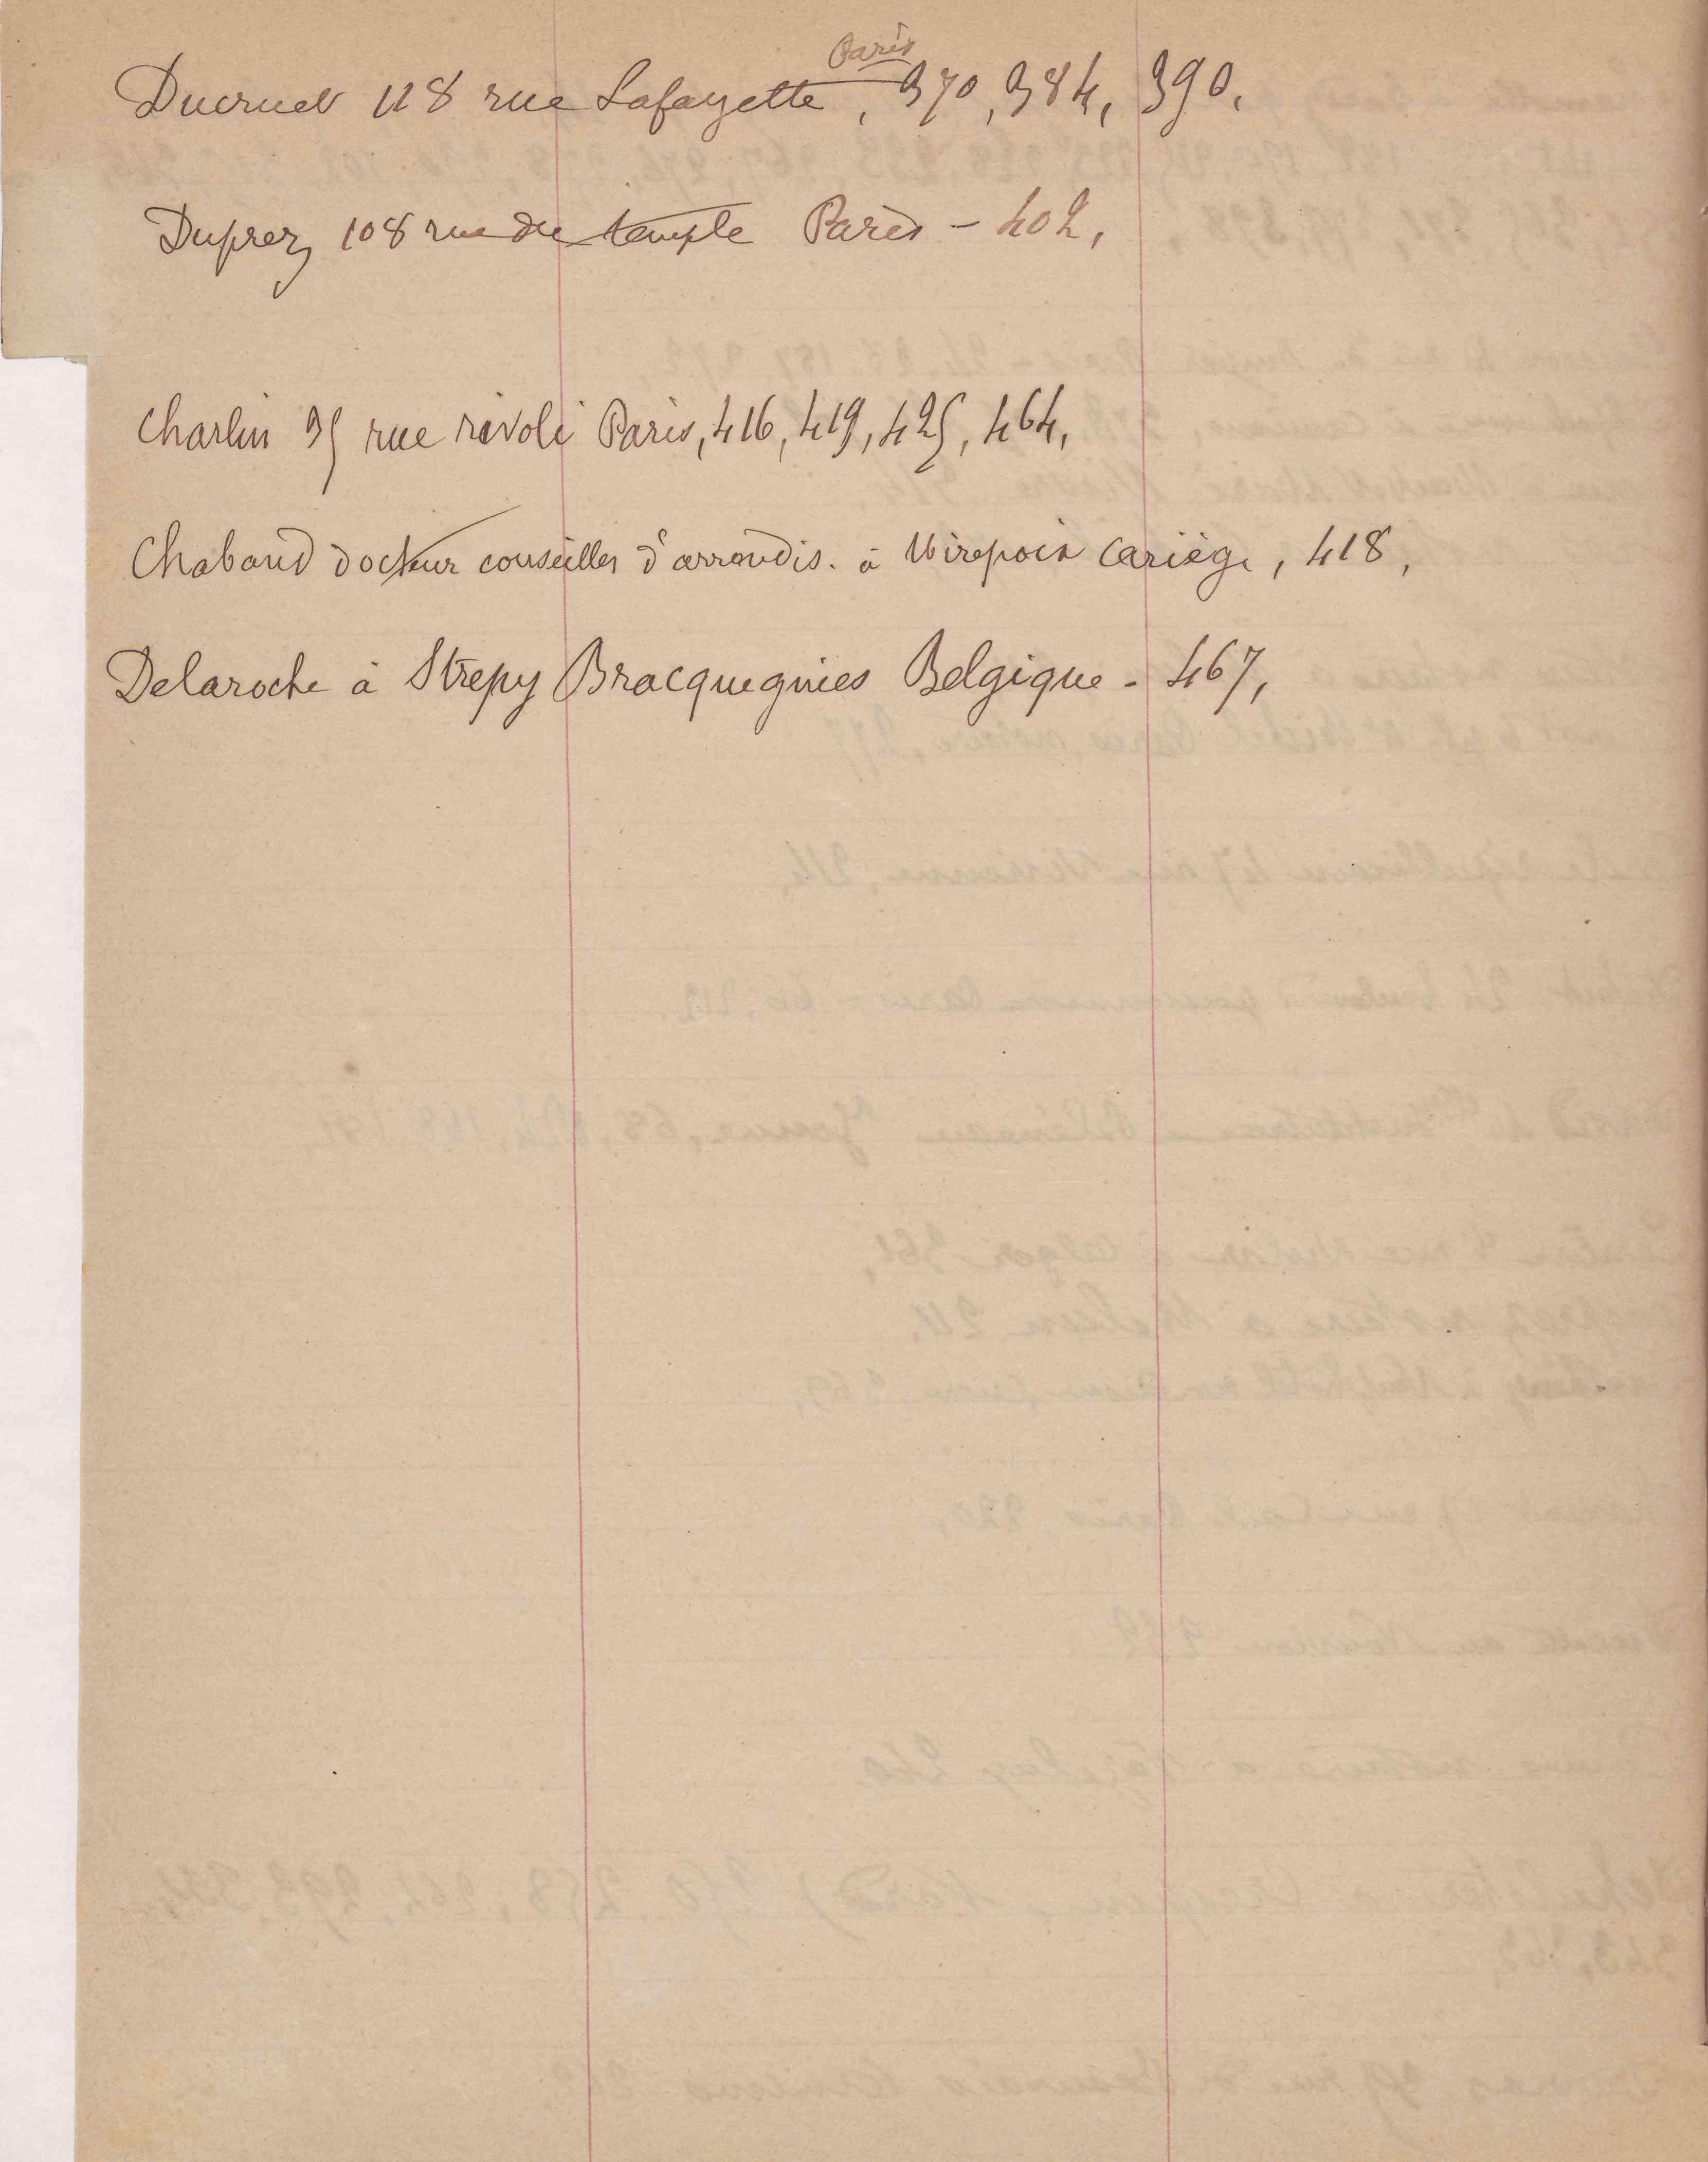 Paris
Ducruet 118 rue Lafayette, 370, 384, 390,
Duprez 108 rue du temple Paris - 402,
Charlin 35 rue rivoli Paris, 416, 419, 425, 464,
Chabaud docteur conseiller d'arrondis. à Mirepoix (ariège, 418,
Delaroche à Strepy Bracquegnies Belgique - 467,